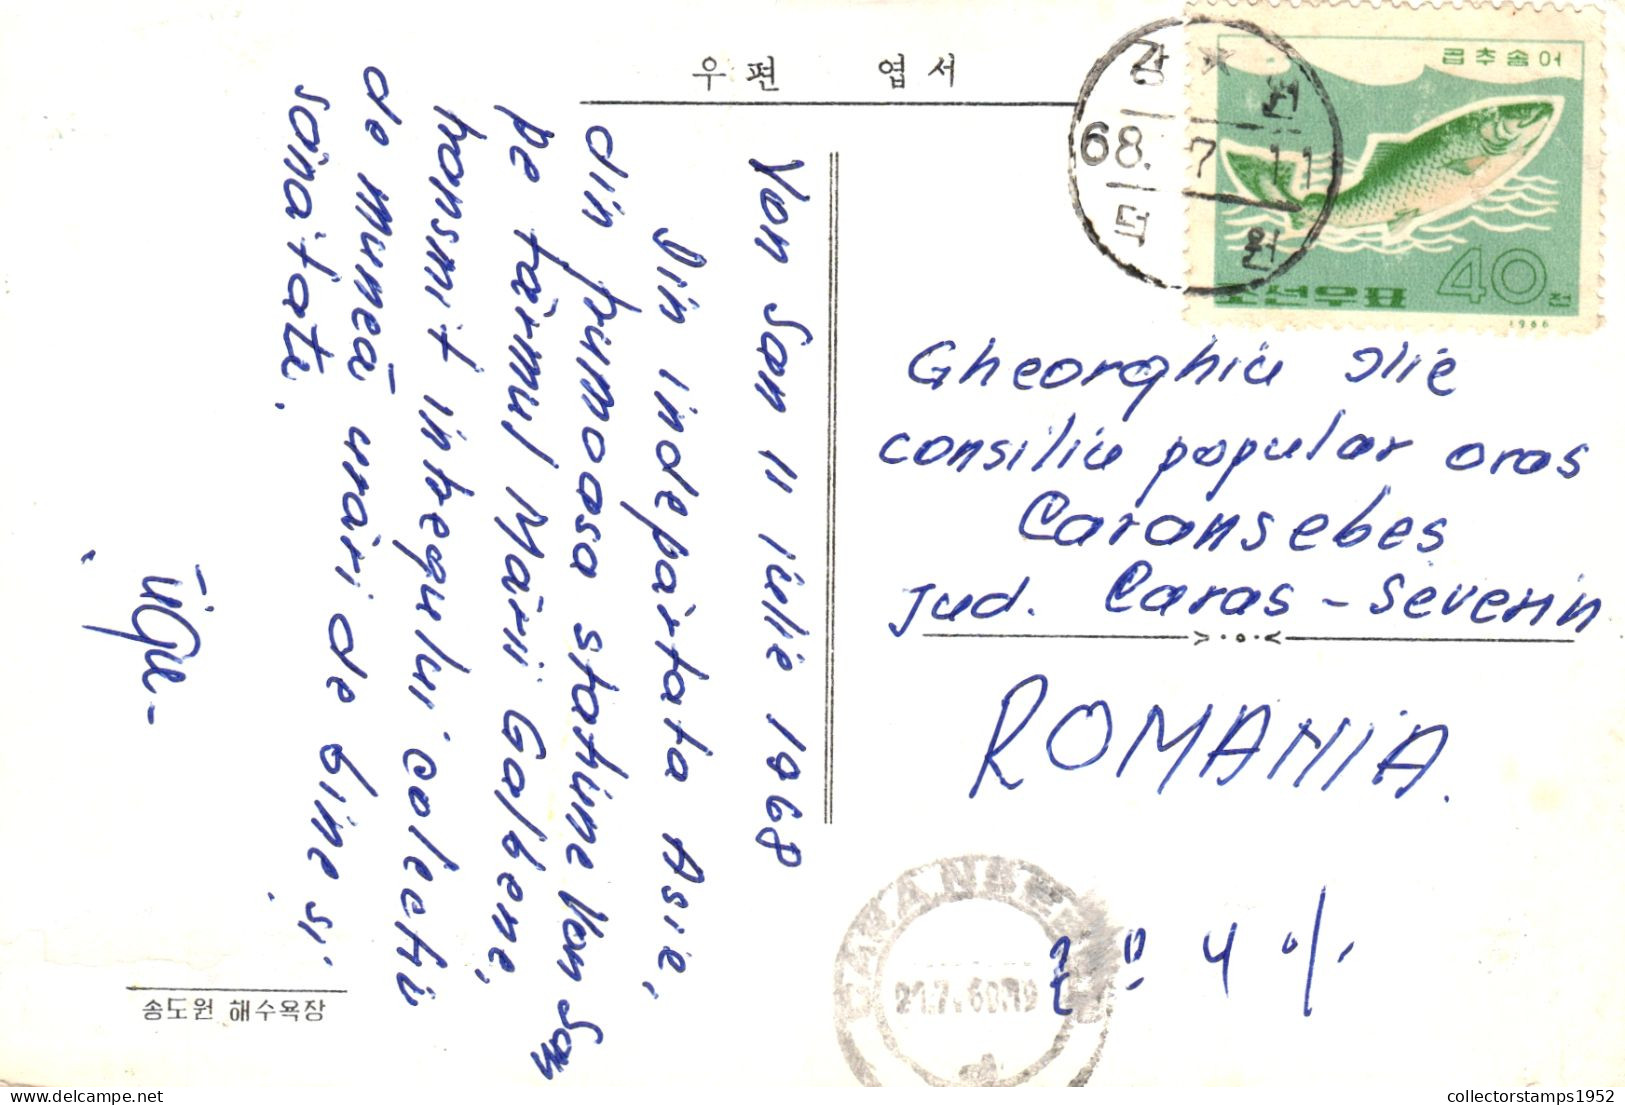 우편 엽서
곱추송어
40전
조선우표
1966
강 원
68. 7 11
덕 원
Von San 11 iulie 1968
Din indepărtata Asie,
din frumoasa statiune Von San
pe tărmul Mării Galbene,
transmit intregului colectiv
de muncă urări de bine si
sănătate.
Gheorghiu Ilie
consiliu popular oras
Caransebes
jud. Caras - Severin
ROMANIA.
21.7.68
송도원 해수욕장
delcampe.net
collectorstamps1952